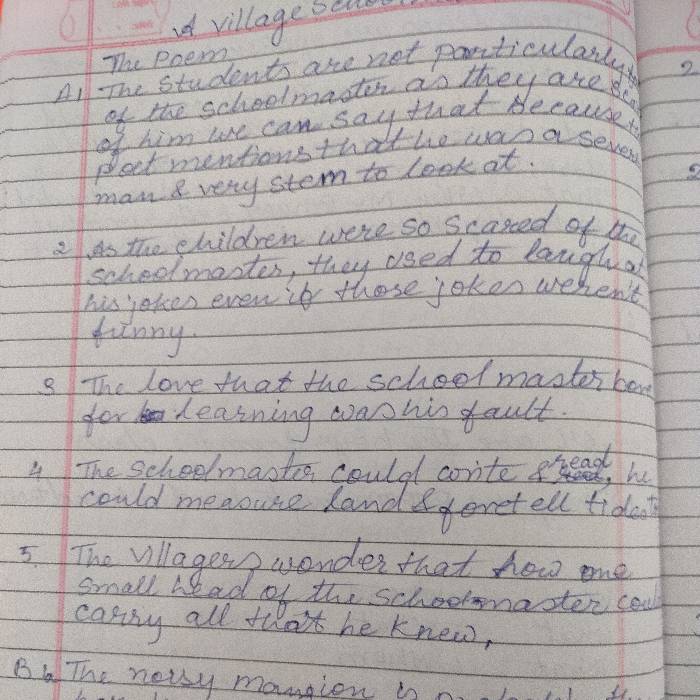 A village
The Poem
A1 The Students are not particularly
of the schoolmaster as they are
of him we can say that because
poet mentions that he was a severe
man & very stern to look at.
2 As the children were so scared of the
schoolmaster, they used to laugh at
his jokes even if those jokes weren't
funny.
3 The love that the school master bore
for learning was his fault.
4 The Schoolmaster could write & read, he
could measure land & foretell tides
5. The Villagers wonder that how one
small head of the schoolmaster could
carry all that he knew,
B The noisy mansion is